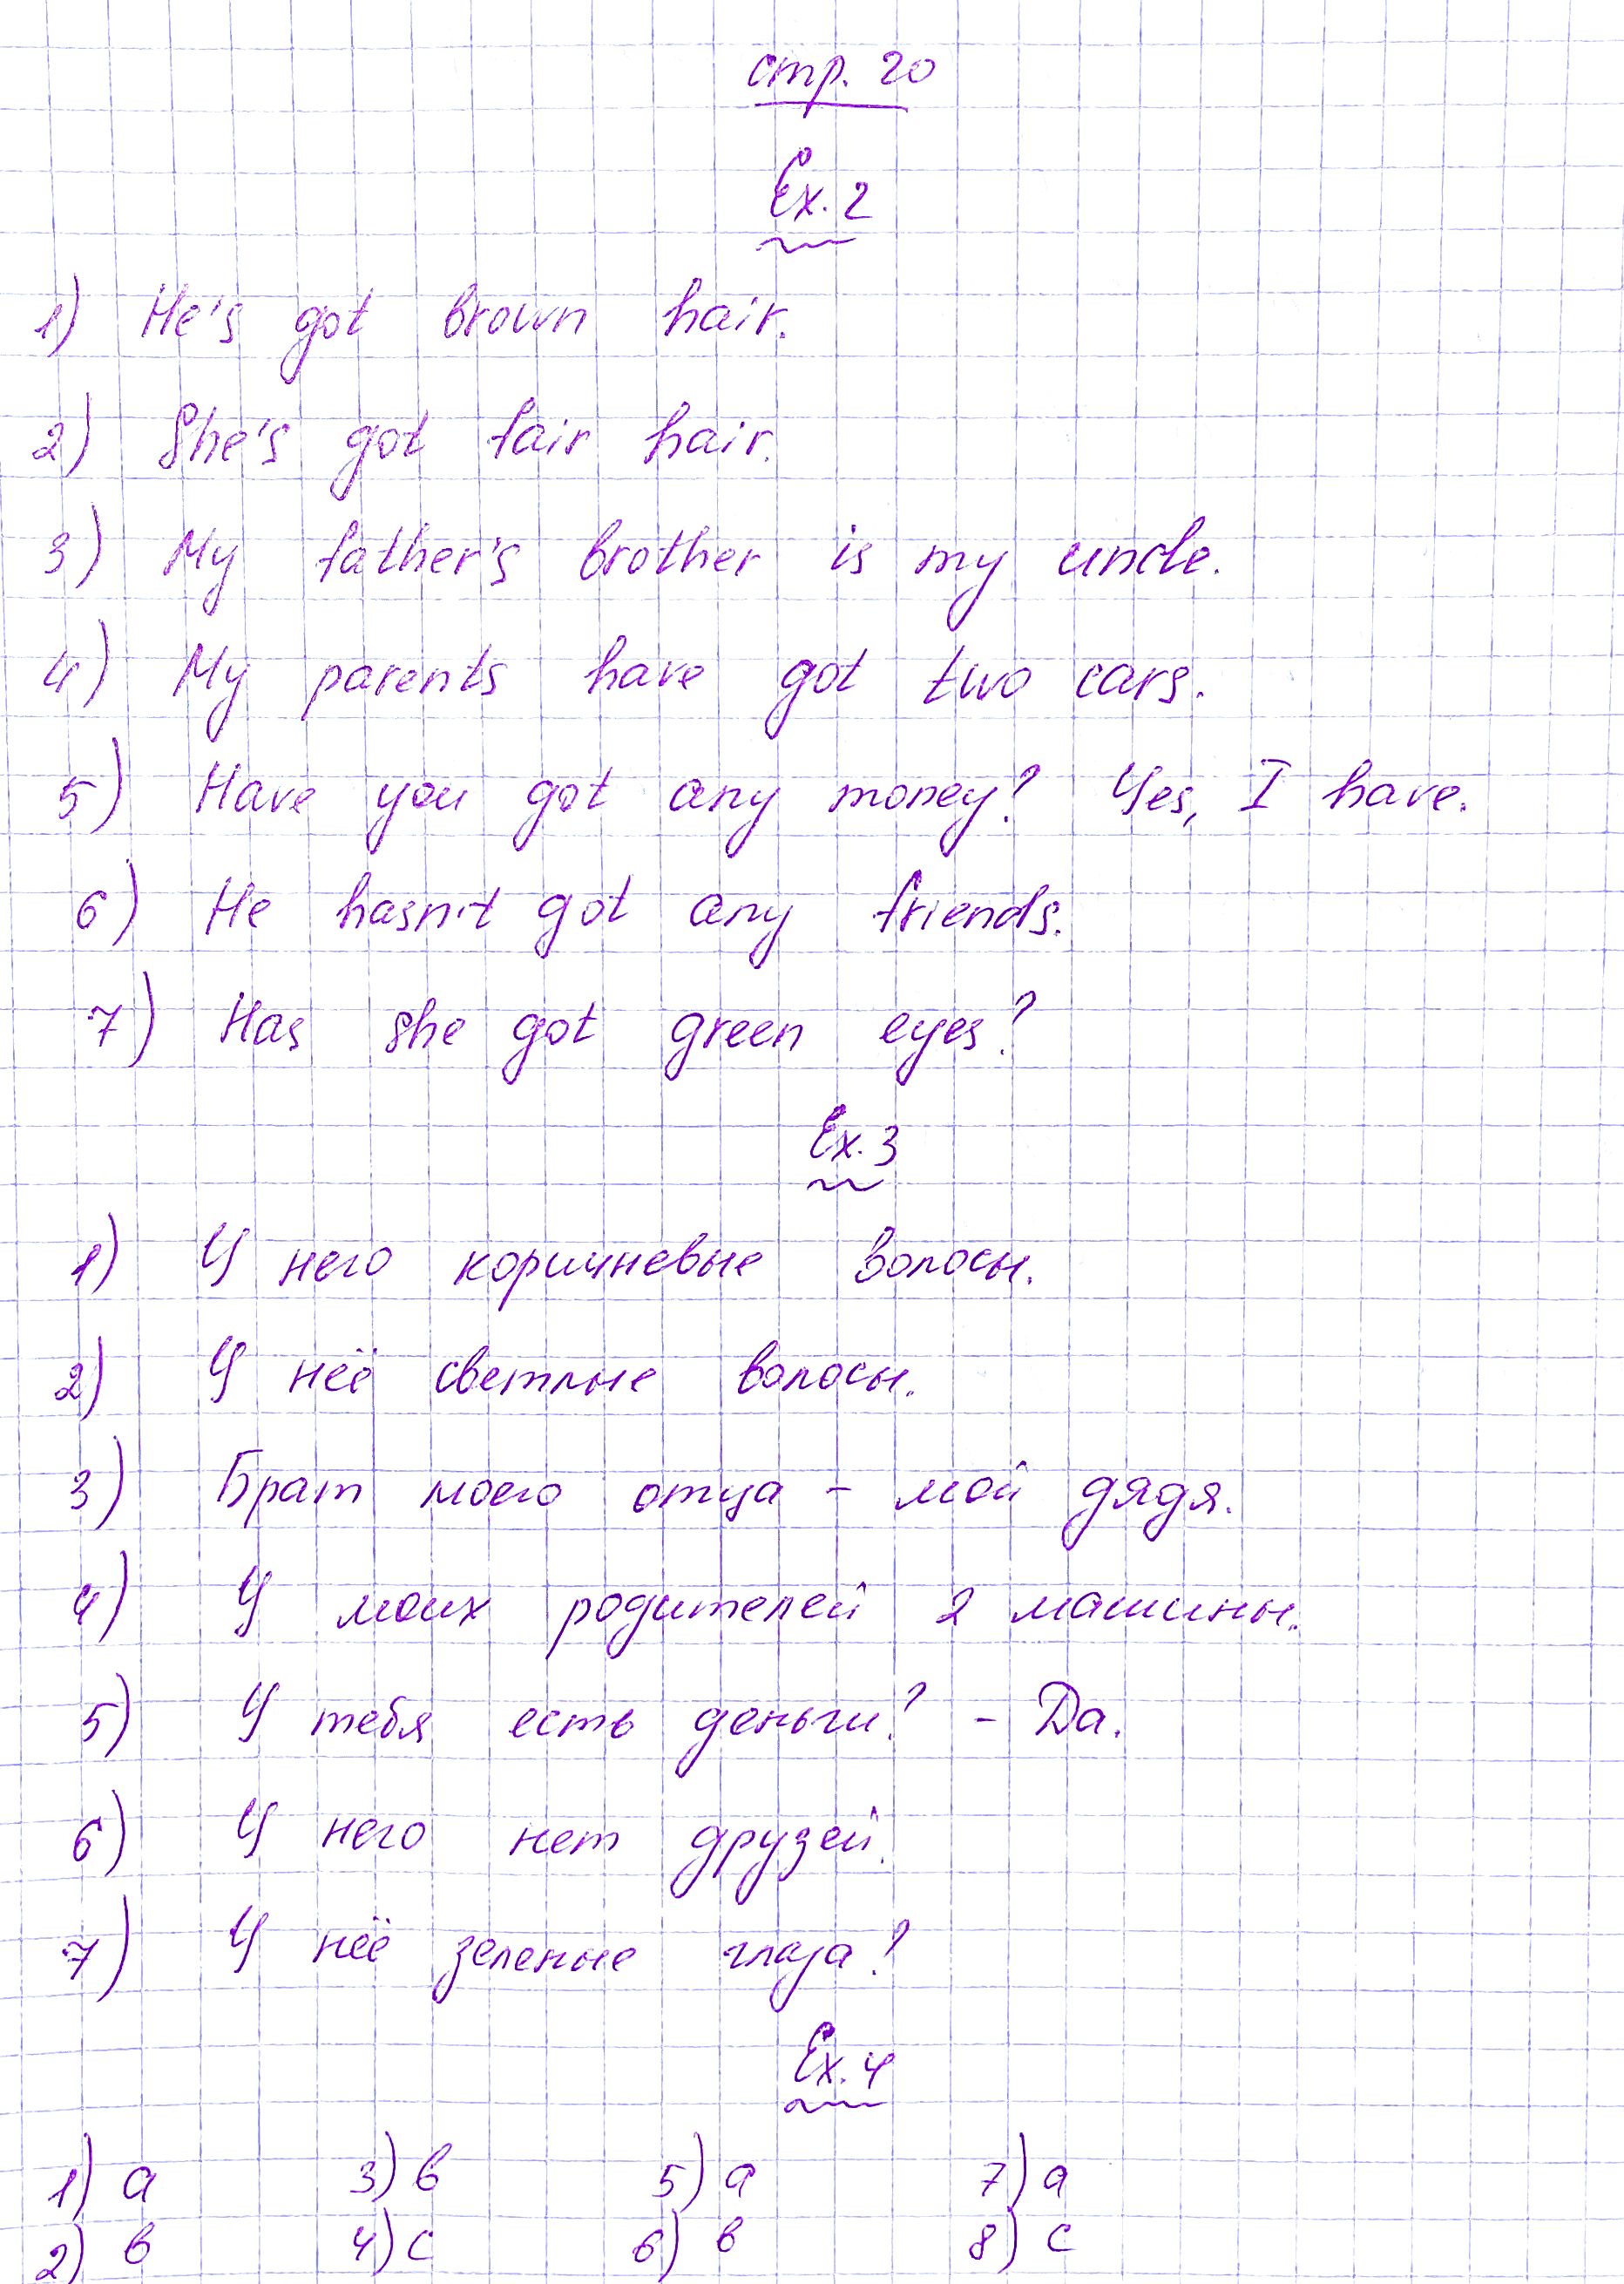 стр. 20
Ex. 2
1) He's got brown hair.
2) She's got fair hair.
3) My father's brother is my uncle.
4) My parents have got two cars.
5) Have you got any money? Yes, I have.
6) He hasn't got any friends.
7) Has she got green eyes?
Ex. 3
1) У него коричневые волосы.
2) У неё светлые волосы.
3) Брат моего отца - мой дядя.
4) У моих родителей 2 машины.
5) У тебя есть деньги? - Да.
6) У него нет друзей.
7) У неё зеленые глаза?
Ex. 4
1) a 3) b 5) a 7) a
2) b 4) c 6) b 8) c